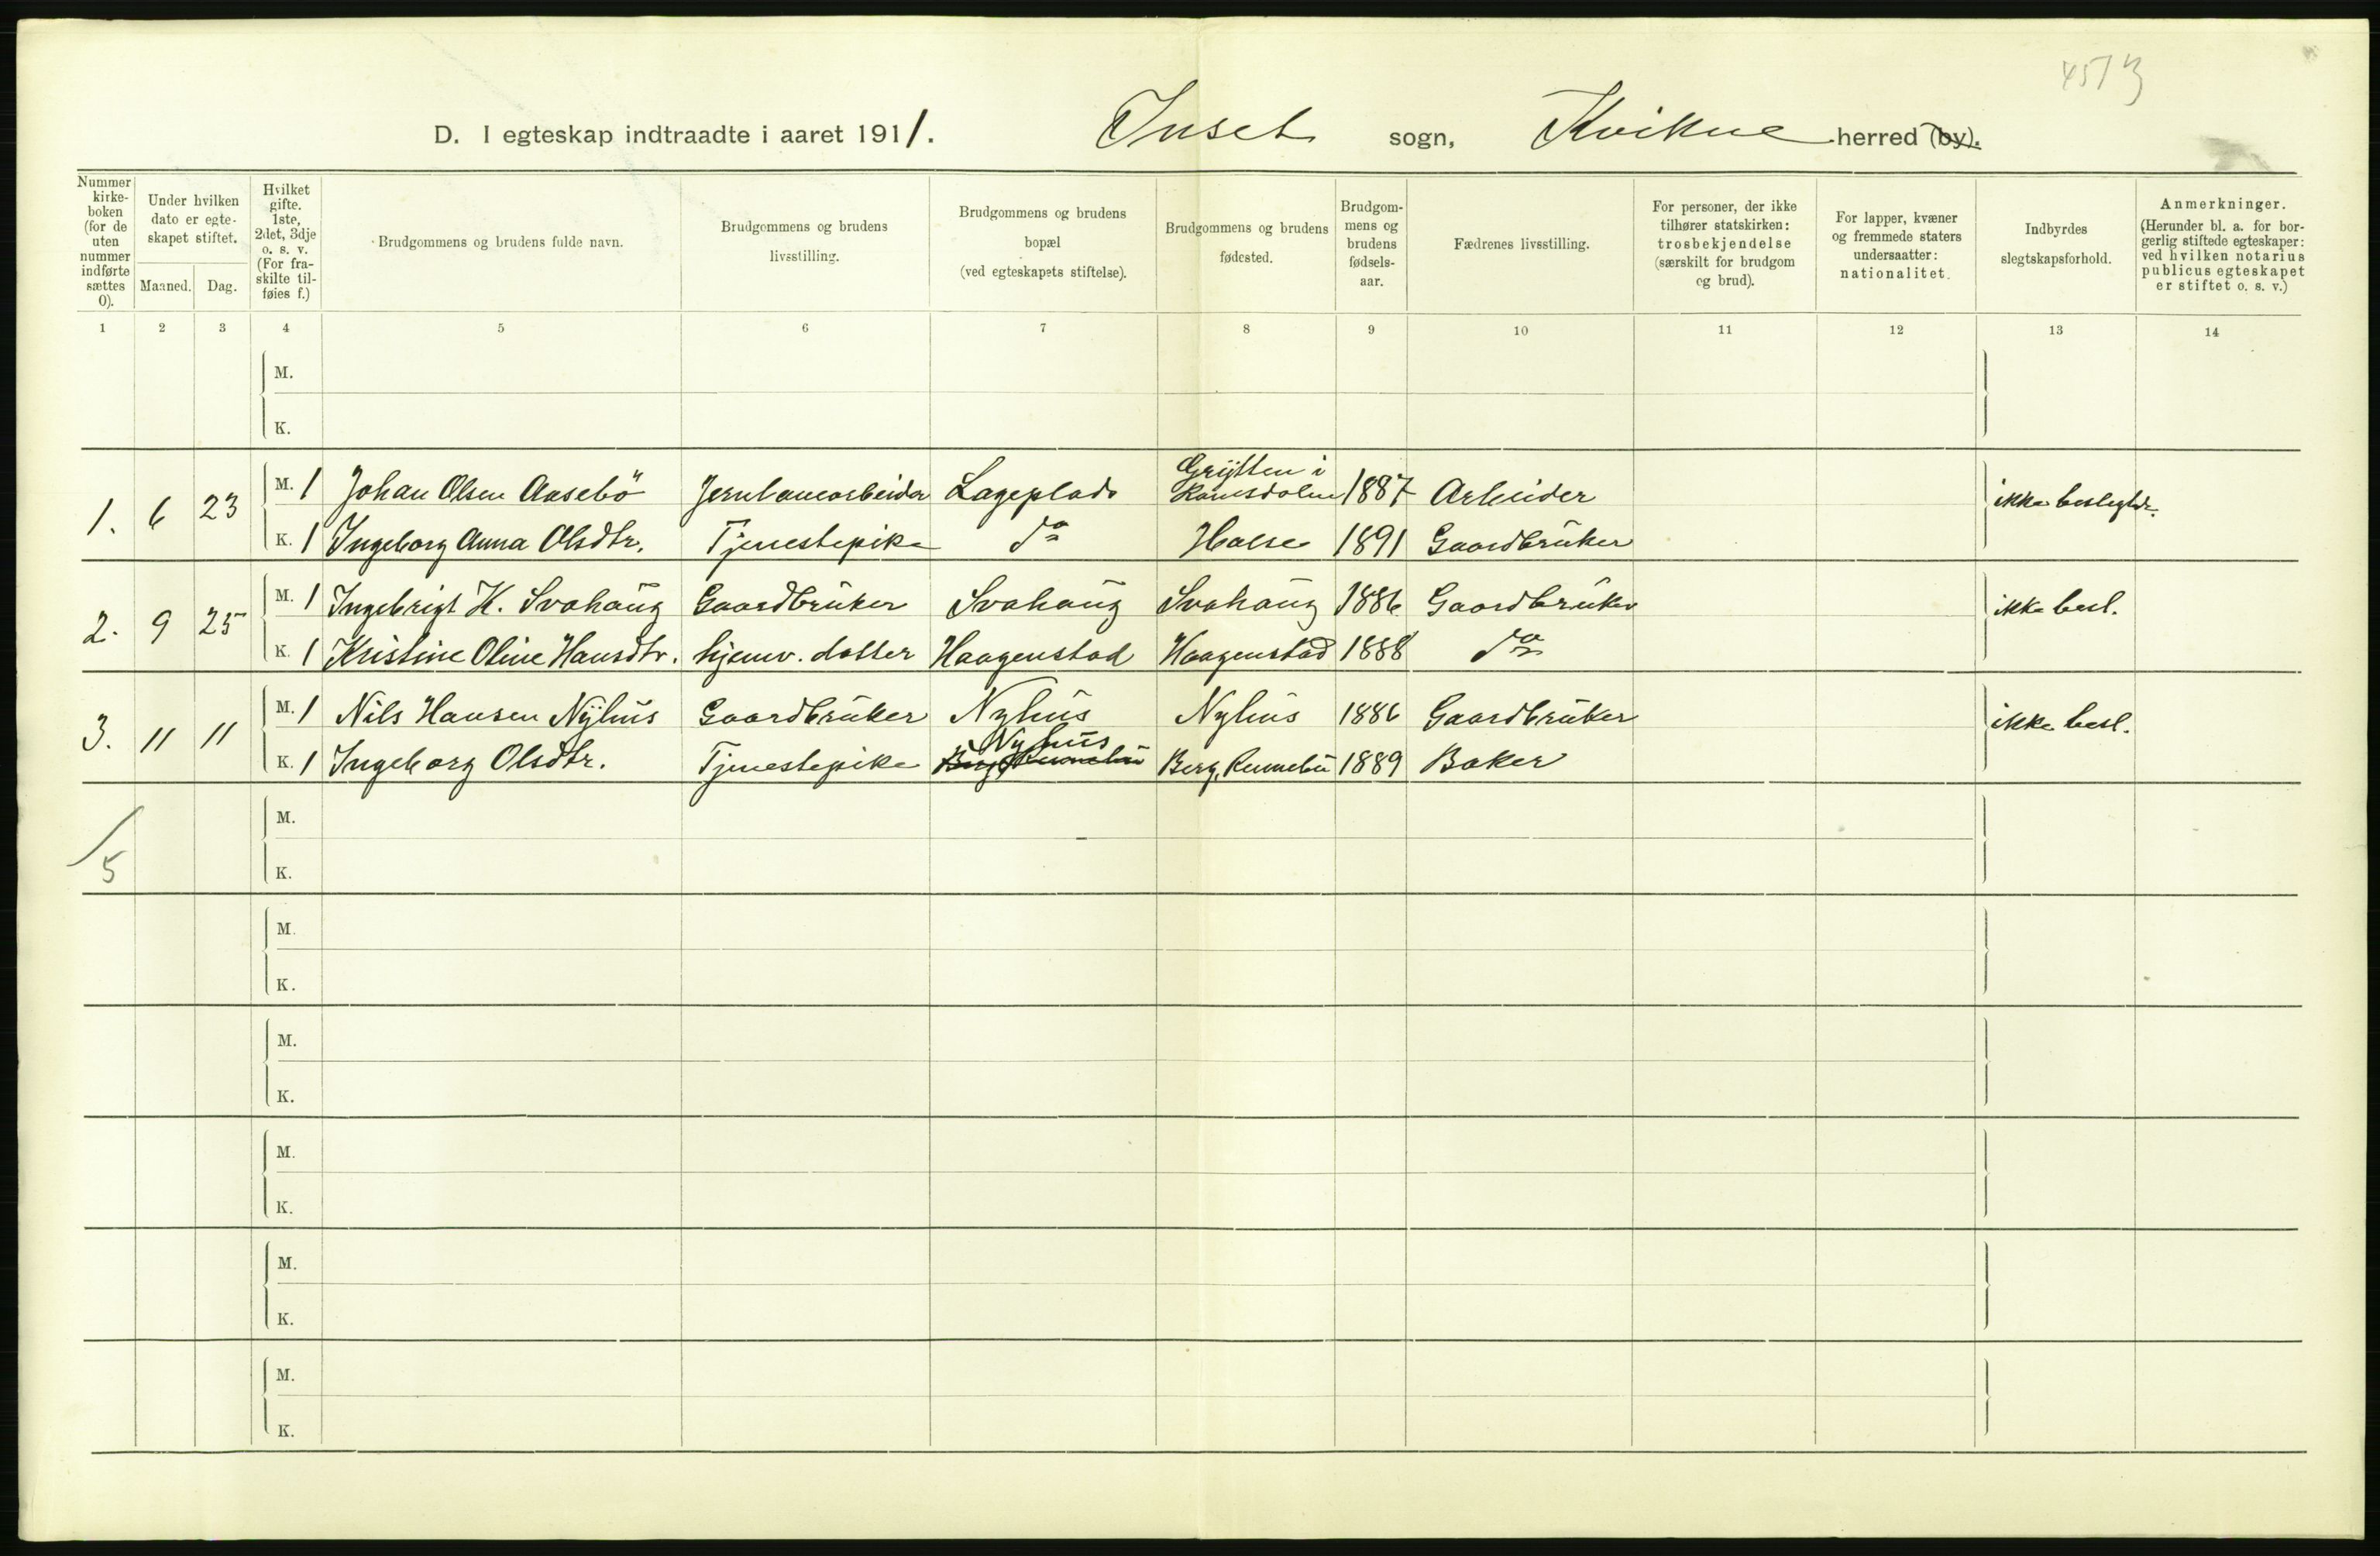 4573
D. I egteskap indtraadte i aaret 1911. Inset sogn, Kvikne herred (by).
Nummer kirke-boken (for de uten nummer indførte sættes 0).
Under hvilken dato er egte-skapet stiftet.
Maaned. Dag.
Hvilket gifte. 1ste, 2det, 3dje o. s. v. (For fra-skilte til-føies f.)
Brudgommens og brudens fulde navn.
Brudgommens og brudens livsstilling.
Brudgommens og brudens bopæl (ved egteskapets stiftelse).
Brudgommens og brudens fødested.
Brudgom-mens og brudens fødsels-aar.
Fædrenes livsstilling.
For personer, der ikke tilhører statskirken: trosbekjendelse (særskilt for brudgom og brud).
For lapper, kvæner og fremmede staters undersaatter: nationalitet.
Indbyrdes slegtskapsforhold.
Anmerkninger. (Herunder bl. a. for bor-gerlig stiftede egteskaper: ved hvilken notarius publicus egteskapet er stiftet o. s. v.)
1 2 3 4 5 6 7 8 9 10 11 12 13 14
M.
K.
1. 6 23 M. 1 Johan Olsen Aasebö Jernbanearbeider Lageplads Grytten i Romsdalen 1887 Arbeider ikke beslegtde.
K. 1 Ingeborg Anna Olsdtr. Tjenestepike do Halse 1891 Gaardbruker
2. 9 25 M. 1 Ingebrigt K. Svahaug Gaardbruker Svahaug Svahaug 1886 Gaardbruker ikke besl.
K. 1 Kristine Oline Hansdtr. hjemv. datter Haagenstad Haagenstad 1888 do
3. 11 11 M. 1 Nils Hansen Nyhus Gaardbruker Nyhus Nyhus 1886 Gaardbruker ikke besl.
K. 1 Ingeborg Olsdtr. Tjenestepike Nyhus Berg, Rennebu Berg, Rennebu 1889 Baker
/5
M.
K.
M.
K.
M.
K.
M.
K.
M.
K.
M.
K.